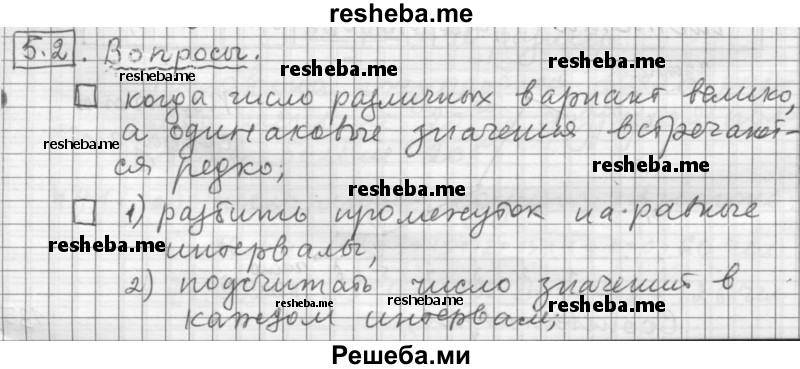 resheba.me
5.2. Вопросы.
resheba.me
resheba.me
resheba.me
когда число различных вариант велико,
а одинаковые значения встречают-
resheba.me
ся редко;
resheba.me
resheba.me
1) разбить промежуток на равные
resheba.me
интервалы,
2) подсчитать число значений в
resheba.me
resheba.me
resheba.me
каждом интервале;
Решеба.ми